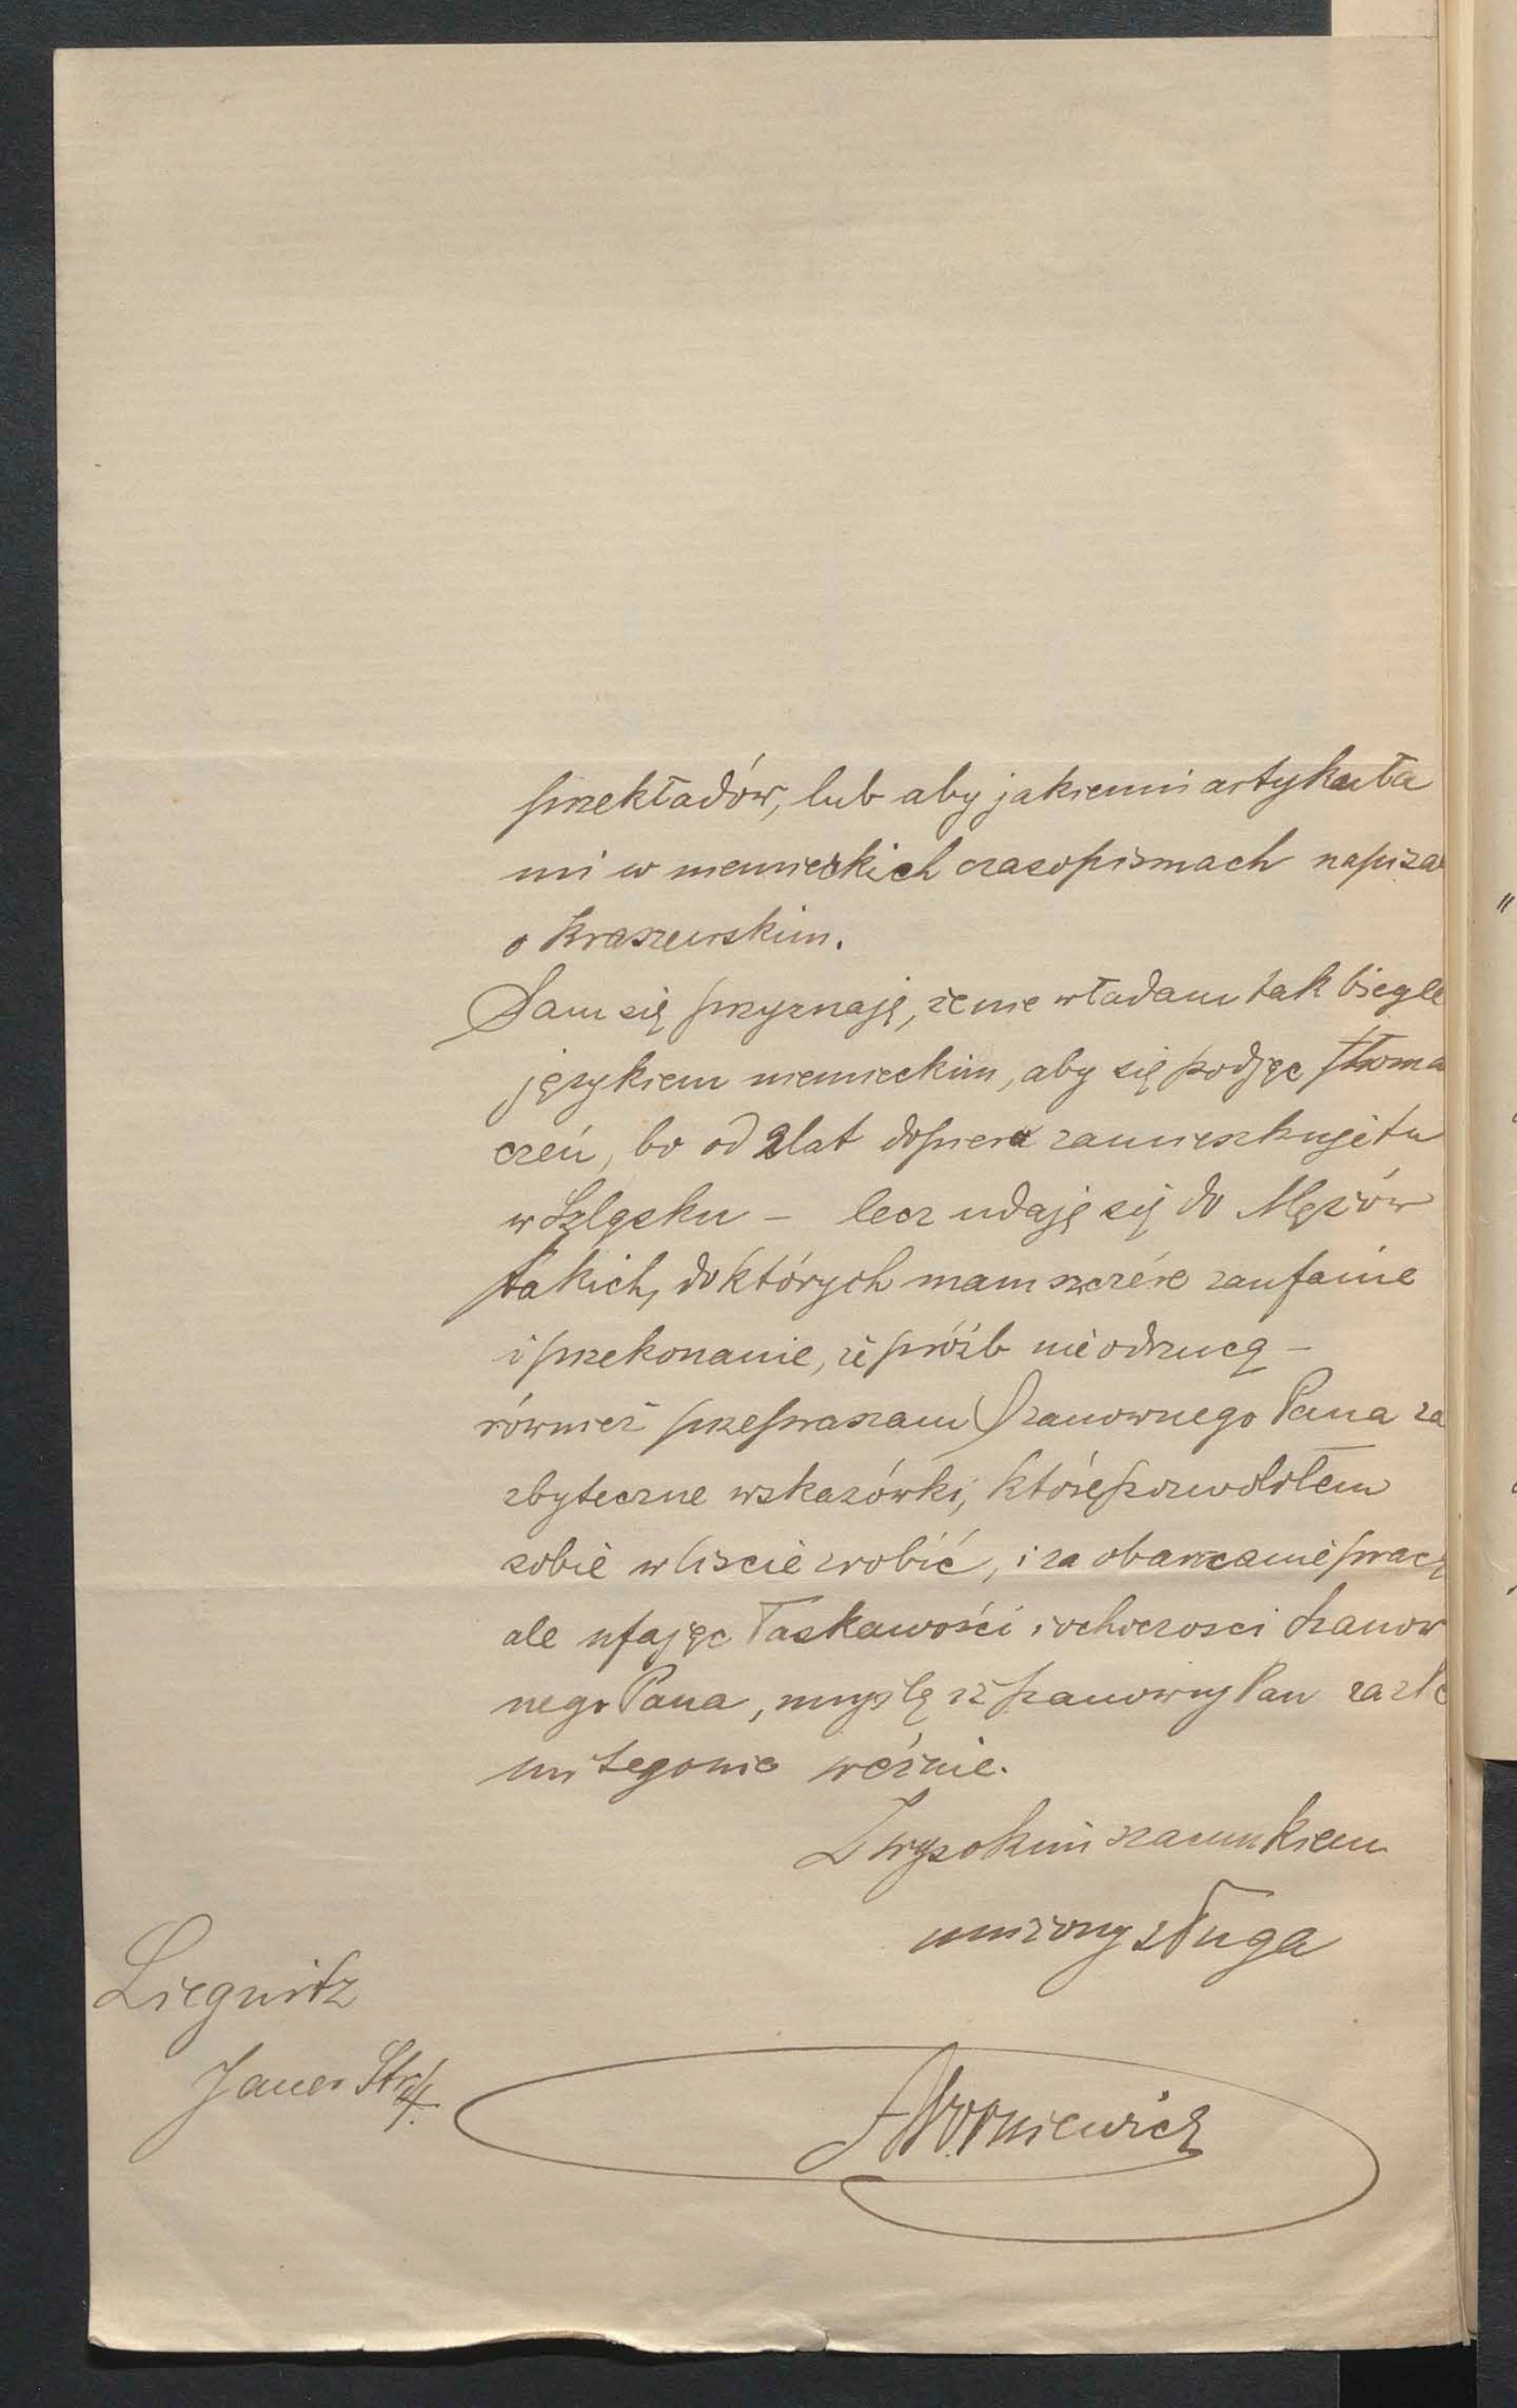 przekładów, lub aby jakiemi artykuła
mi w niemieckich czasopismach napisa
o Kraszewskim.
Sam się przyznaję, że nie władam tak biegle
językiem niemieckim, aby się podjęc tłoma
czeń, bo od 2 lat dopiero zamieszkuję tu
w Szląsku – lecz udaję się do Mężów
takich, do których mam szczére zaufanie
i przekonanie, że próźb nie odrzucą –
również przepraszam Szanownego Pana za
zbyteczne wskazówki, które pozwoliłem
sobie w liscie zrobić, i za obarczanie pracą
ale ufając Łaskawości i ochoczosci Szanow
nego Pana, myslę że szanowny Pan za złe
mi tego nie weźnie.
Z wysokim szacunkiem
unizony sługa
Liegnitz
Jauer Str 4.